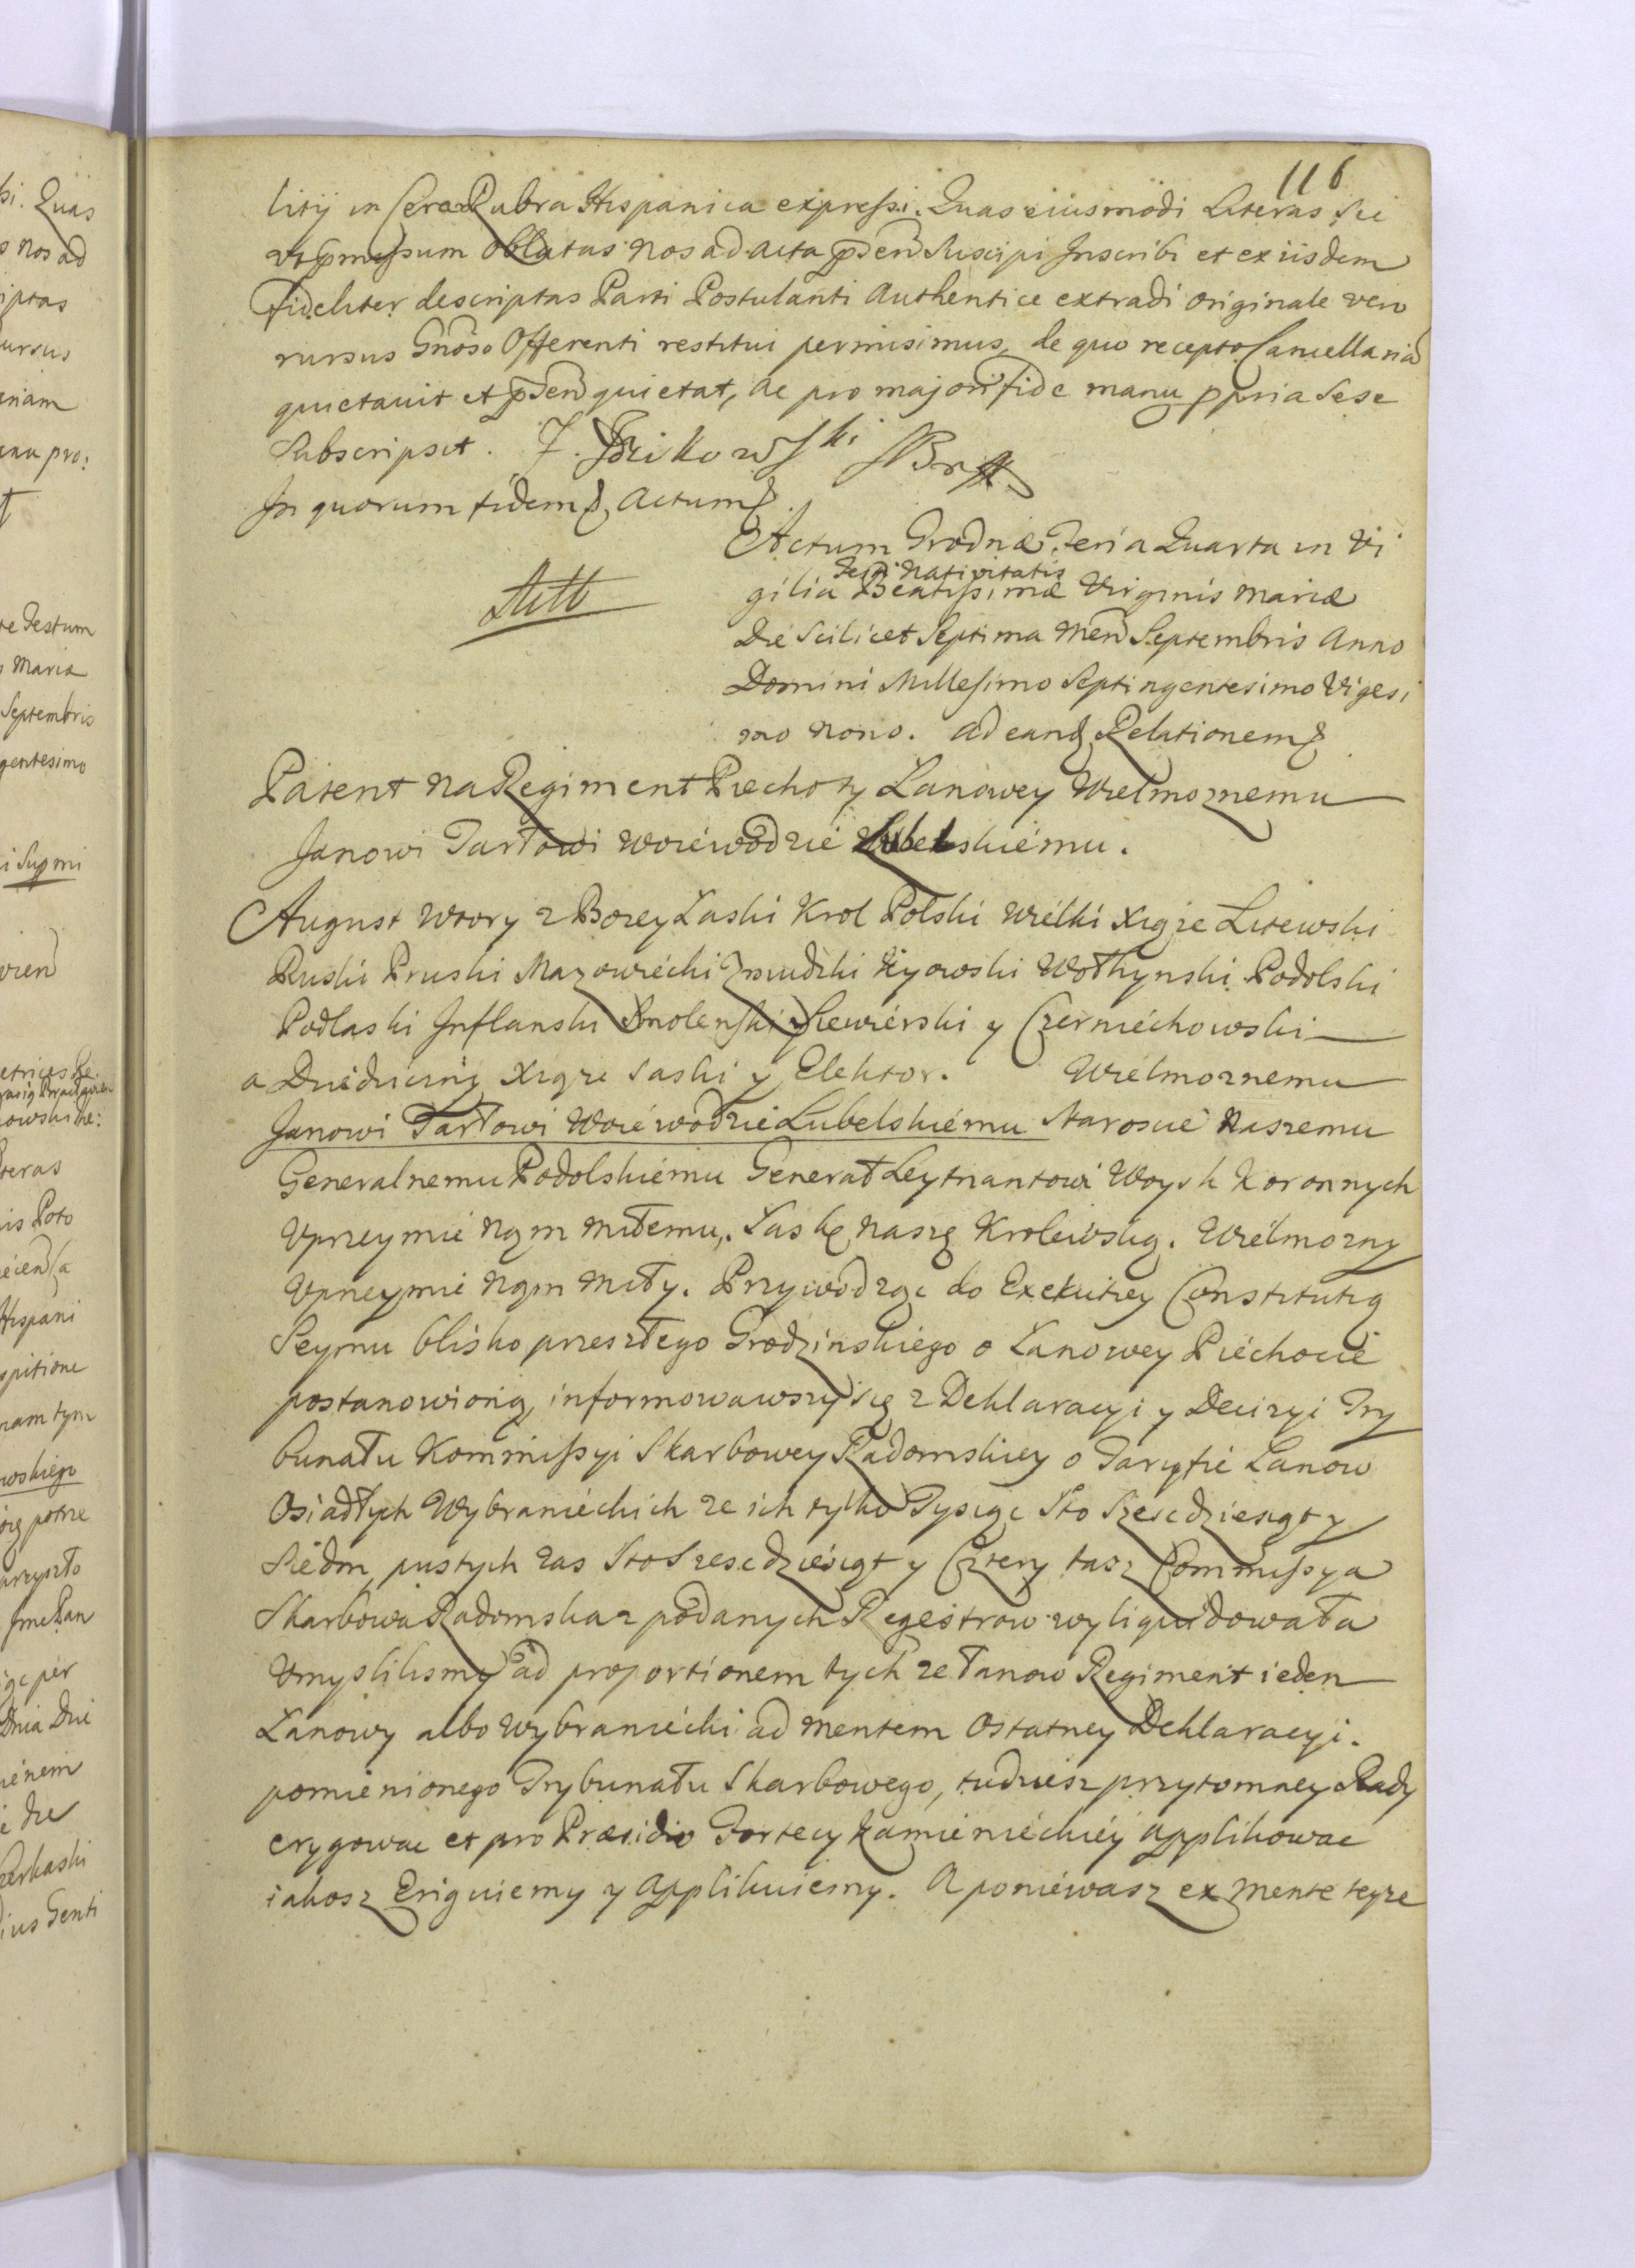 116
litij in Cera Rubra Hispanica expressi. Quas eiusmodi Literas sic
vt pmissum oblatas nos ad acta pñtia suscipi Inscribi et ex iisdem
fideliter descriptas Parti Postulanti Authentice extradi originale vero
rursus Gñoso Offerenti restitui permisimus, de quo recepto Cancellariã
quietavit et pñtia quietat, ac pro majori fide manu ppria sese
Subscripsit.
In quorum fidem &, Actum &.
Actum Grodnæ Feria Quarta in Vi
festi Nativitatis
gilia Beatissimæ Virginis Mariæ
Die Scilicet Septima Men Septembris Anno
Domini Millesimo Septingentesimo Vigesi
mo nono. Ad eand Relationem &
Patent na Regiment Piechoty Lanowey Wielmoznemu
Janowi Tarłowi Woiewodzie Lubelskiemu.
August Wtory z Bozey Łaski Krol Polski Wielki Xiąze Litewski
Ruski Pruski Mazowiecki Zmudzki Kijowski Wołhynski Podolski
Podlaski Inflanski Smolenski Siewierski y Czerniechowski
a Dziedziczny Xiąze Saski y Elektor. Wielmoznemu
Janowi Tarłowi Woiewodzie Lubelskiemu Staroscie Naszemu
Generalnemu Podolskiemu Generał Leytnantowi Woysk Koronnych
Vprzeymie Nąm miłemu, Łaskę Naszę Krolewską. Wielmozny
Vprzeymie Nąm Miły. Przywodząc do Exekutiey Constitutią
Seymu blisko przeszłego Grodzinskiego o Łanowey Piechocie
postanowioną, informowawszy się z Deklaracyi y Decizyi Try
bunału Kommissyi Skarbowey Radomskiey o Taryfie Łanow
Osiadłych Wybranieckich ze ich tylko Tysiąc Sto Szescdziesiąt y
Siedm, pustych zas Sto Szescdziesiąt y Cztery tasz Commissya
Skarbowa Radomska z podanych Regestrow wyliquidowała
Vmyslilismy ad proportionem tych ze łanow Regiment ieden
Lanowy albo Wybraniecki ad mentem Ostatney Deklaracyi.
pomienionego Trybunału Skarbowego, tudziesz przytomney Rady
erygowac et pro Præsidio Fortecy Kamienieckiey applikowac
iakosz Eriguiemy y applikuiemy. A poniewasz ex mente teyze